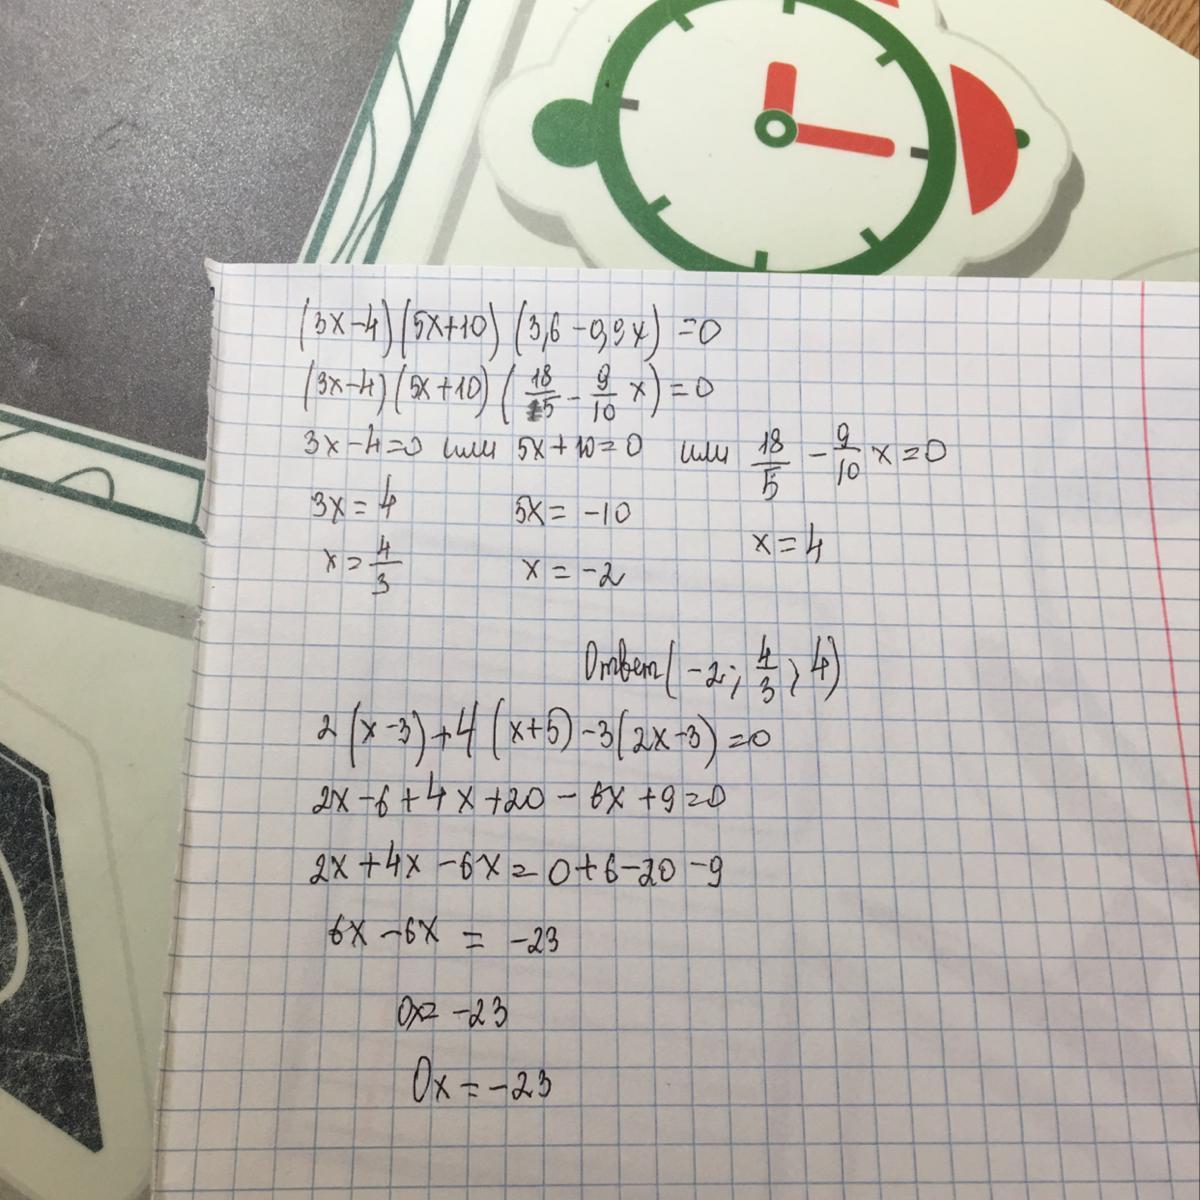 (3x-4)(5x+10)(3,6-0,9x)=0
(3x-4)(5x+10)(18/5-9/10 x)=0
3x-4=0 или 5x+10=0 или 18/5-9/10 x=0
3x=4 5x=-10
x=4/3 x=-2 x=4
Ответ(-2; 4/3; 4)
2(x-3)+4(x+5)-3(2x-3)=0
2x-6+4x+20-6x+9=0
2x+4x-6x=0+6-20-9
6x-6x=-23
0x=-23
0x=-23